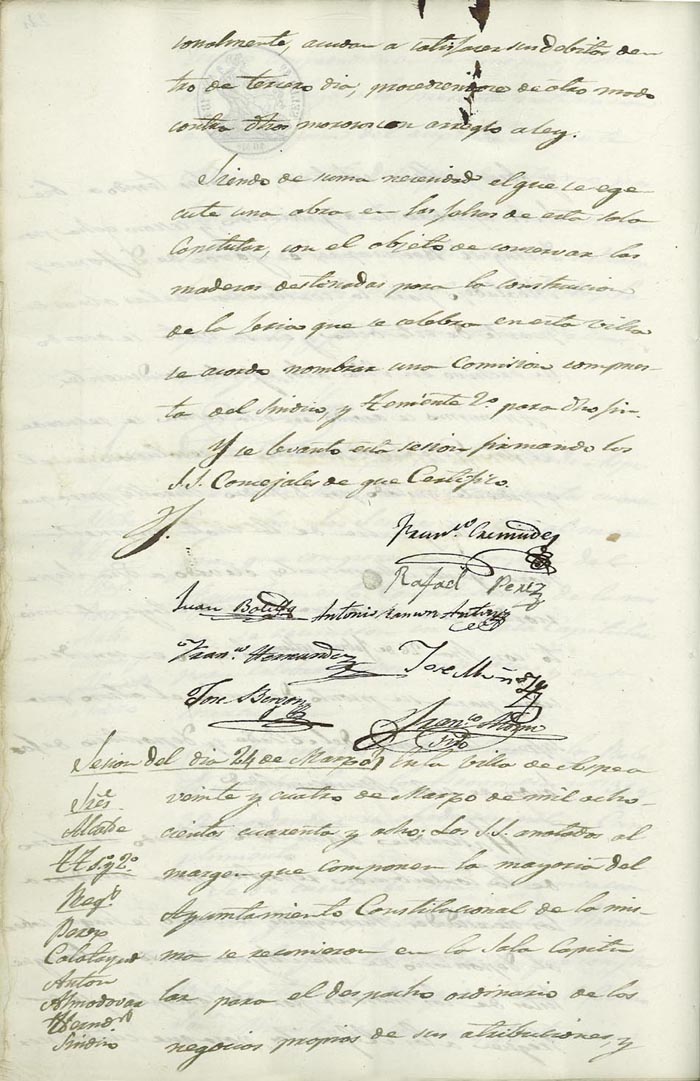 sonalmente, acudan a satisfacer sus debitos den
tro de tercero dia, procediendose de otro modo
contra dhos morosos con arreglo a ley.
Siendo de suma necesidad el que se ege
cute una obra en los de esta sala
Capitular, con el objeto de conservar las
maderas destinadas para la construccion
de la feria que se celebra en esta villa
se acordo nombrar una Comision compues
ta del Sindico, y Teniente 2º para dho fin.
Y se levanto esta sesion firmando los
S.S. Concejales de que Certifico.
Franco.
Rafael Perez
Juan Botella Antonio Ramon Anton
Franco. Hernandez Jose
Jose
Franco.
Sindo
Sesion del dia 24 de Marzo
En la Villa de Aspe a
veinte y cuatro de Marzo de mil ocho
cientos cuarenta y ocho; Los S.S. anotados al
margen que componen la mayoria del
Ayuntamiento Constitucional de la mis
ma se reunieron en la Sala Capitu
lar para el despacho ordinario de los
negocios propios de sus atribuciones, y
Sres
Alcalde
TT. 1º y 2º
Regs
Perez
Calatayud
Anton
Almodovar
Hernds
Sindico